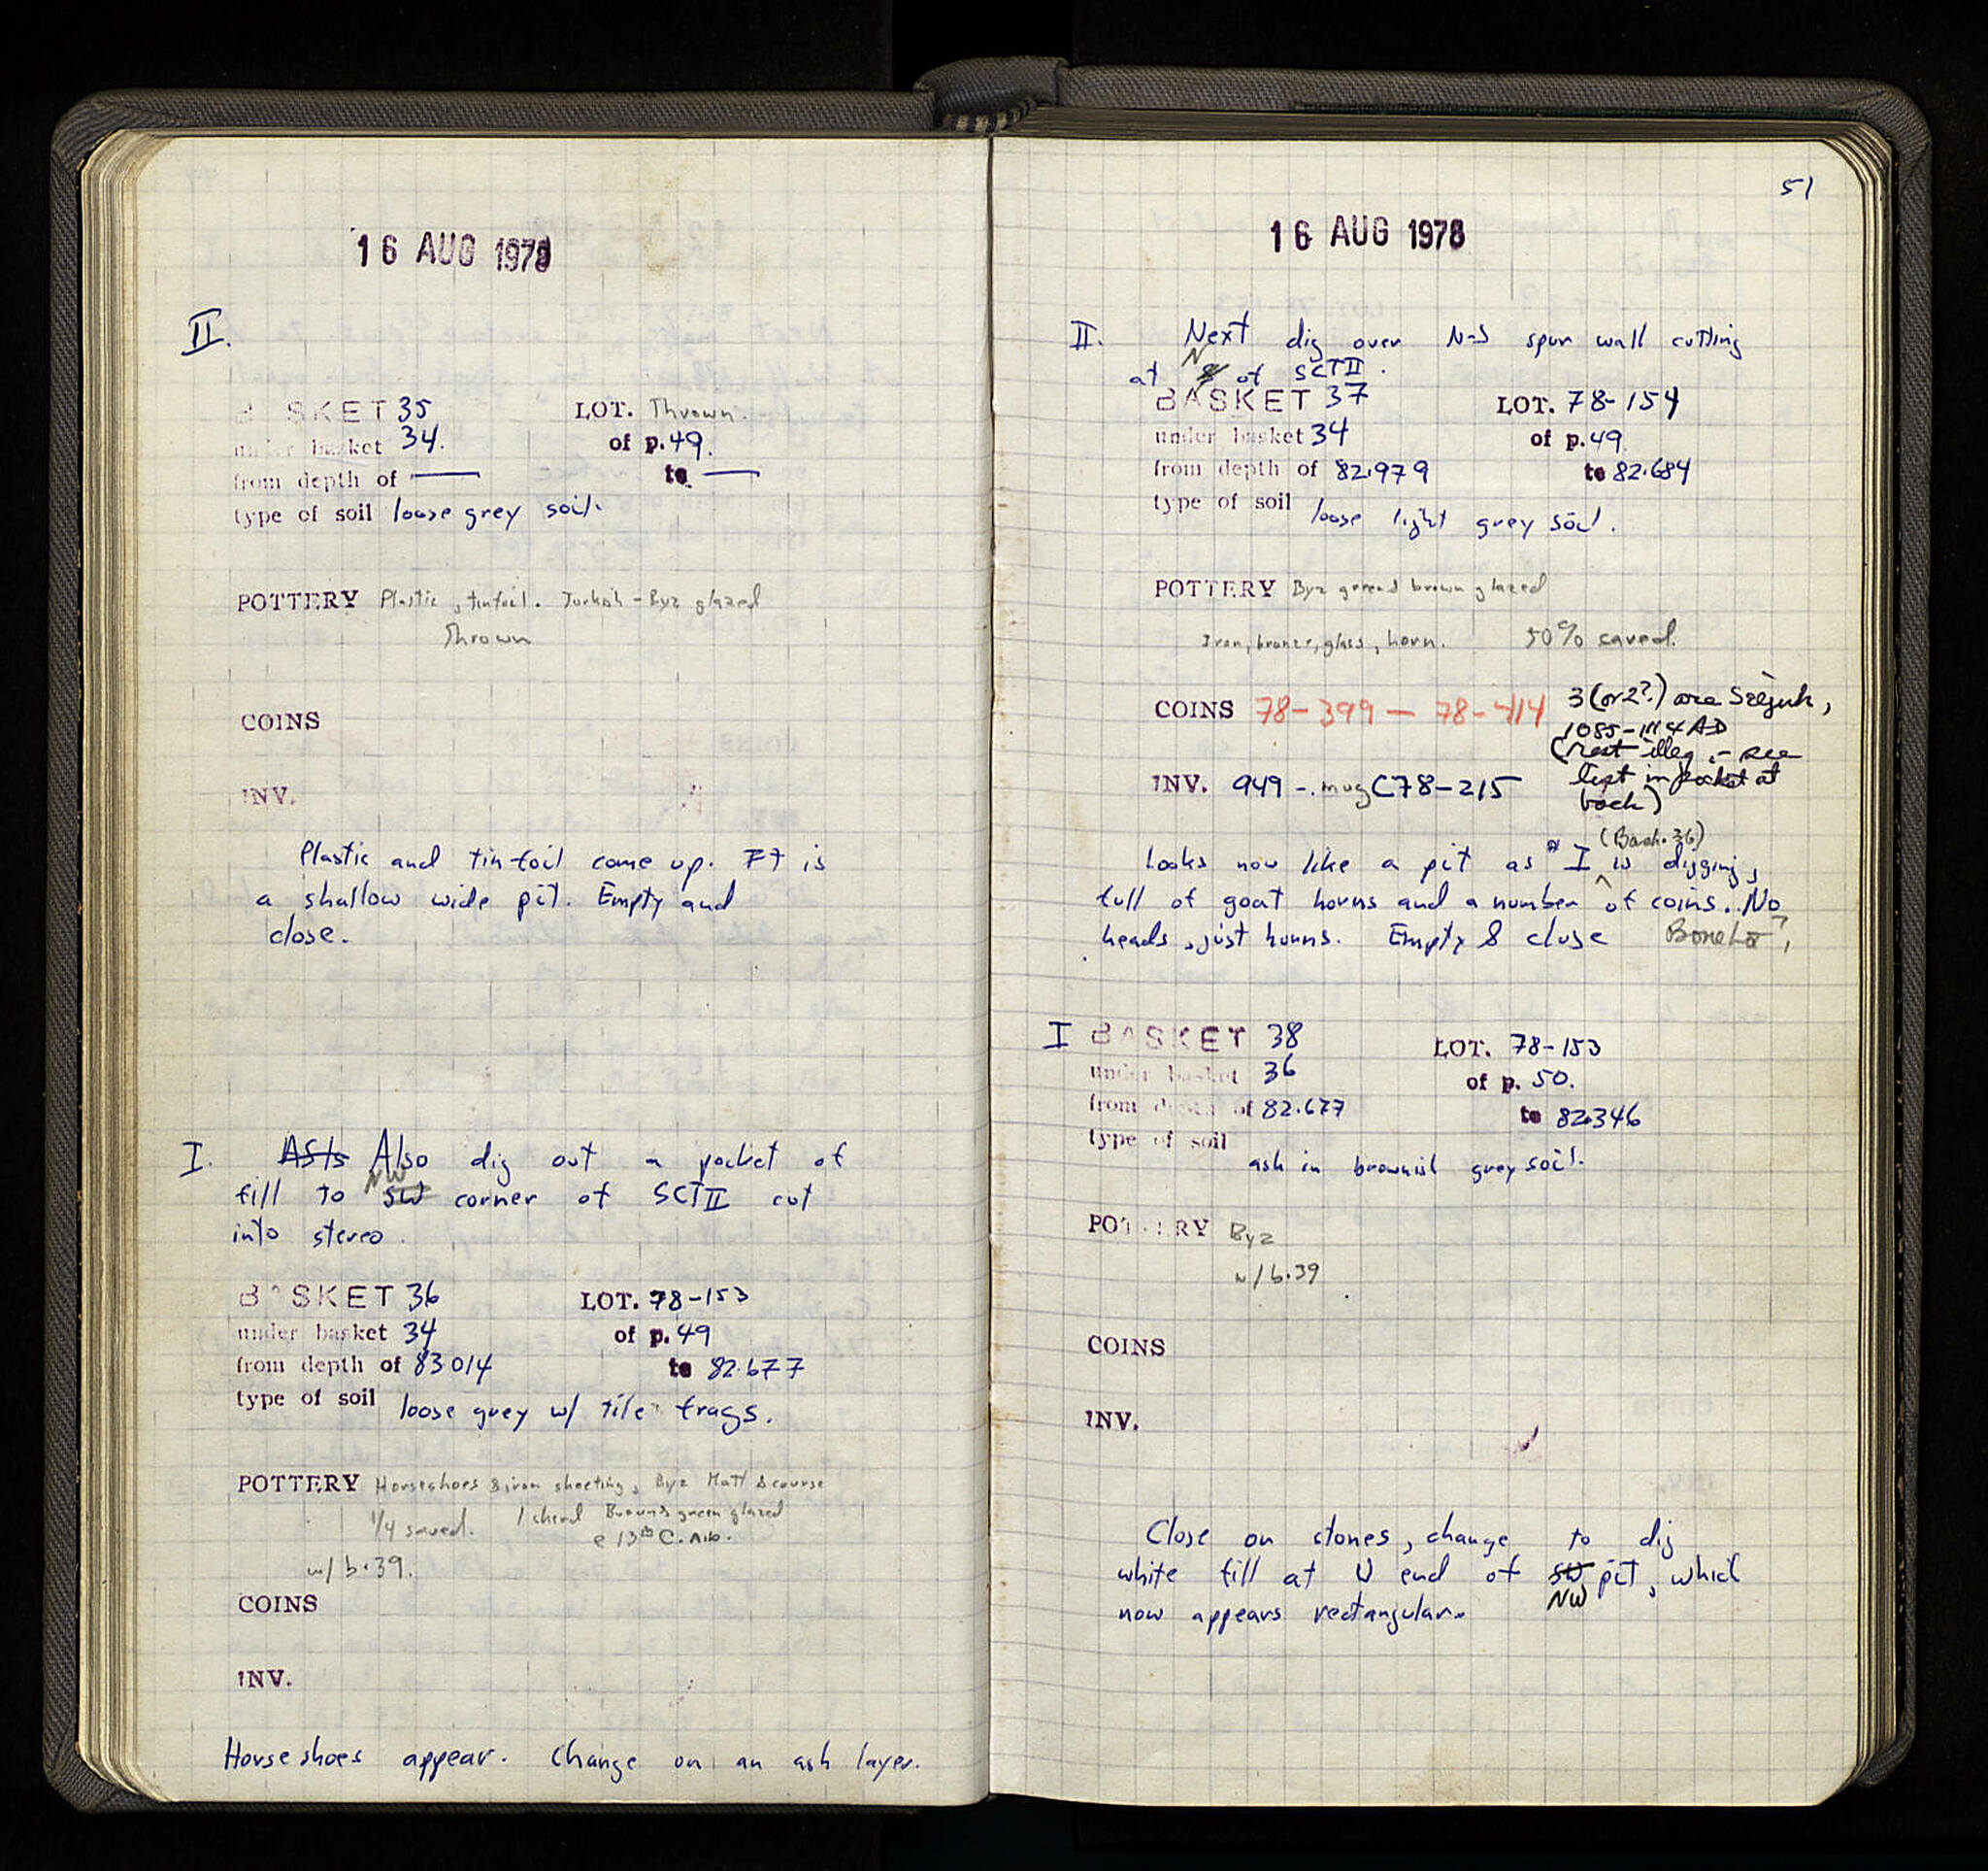 16 AUG 1978
II.
BASKET 35 LOT. Thrown.
under basket 34. of p. 49.
from depth of — to —
type of soil loose grey soil.
POTTERY Plastic, tinfoil. Turkish-Byz glazed
Thrown
COINS
INV.
Plastic and tin foil come up. It is
a shallow wide pit. Empty and
close.
I. Asts Also dig out a pocket of
NW
fill to SW corner of SCT II cut
into stereo.
BASKET 36 LOT. 78-153
under basket 34 of p. 49
from depth of 83014 to 82.677
type of soil loose grey w/ tile frags.
POTTERY Horseshoes & iron sheeting, Byz Matt & course
1/4 saved. 1 sherd Brown & green glazed
e 13th C. A.D.
w/ b.39.
COINS
INV.
Horseshoes appear. Change on an ash layer.
51
16 AUG 1978
II. Next dig over N-S spur wall cutting
N
at S of SCT II.
BASKET 37 LOT. 78-154
under basket 34 of p. 49.
from depth of 82.979 to 82.684
type of soil loose light grey soil.
POTTERY Byz green & brown glazed
Iron, bronze, glass, horn. 50% saved.
COINS 78-399 — 78-414 3 (or 2?) are Seljuk,
1085-1114 AD
(rest illeg. - see
list in pocket at
back)
INV. 949 - mug C78-215
(Bask. 36)
Looks now like a pit as I is digging,
full of goat horns and a number of coins. No
heads, just horns. Empty & close
I BASKET 38 LOT. 78-153
under basket 36 of p. 50.
from depth of 82.677 to 82.346
type of soil ash in brownish grey soil.
POTTERY Byz
w/ b.39
COINS
INV.
Close on stones, change to dig
white fill at W end of SW pit, which
NW
now appears rectangular.